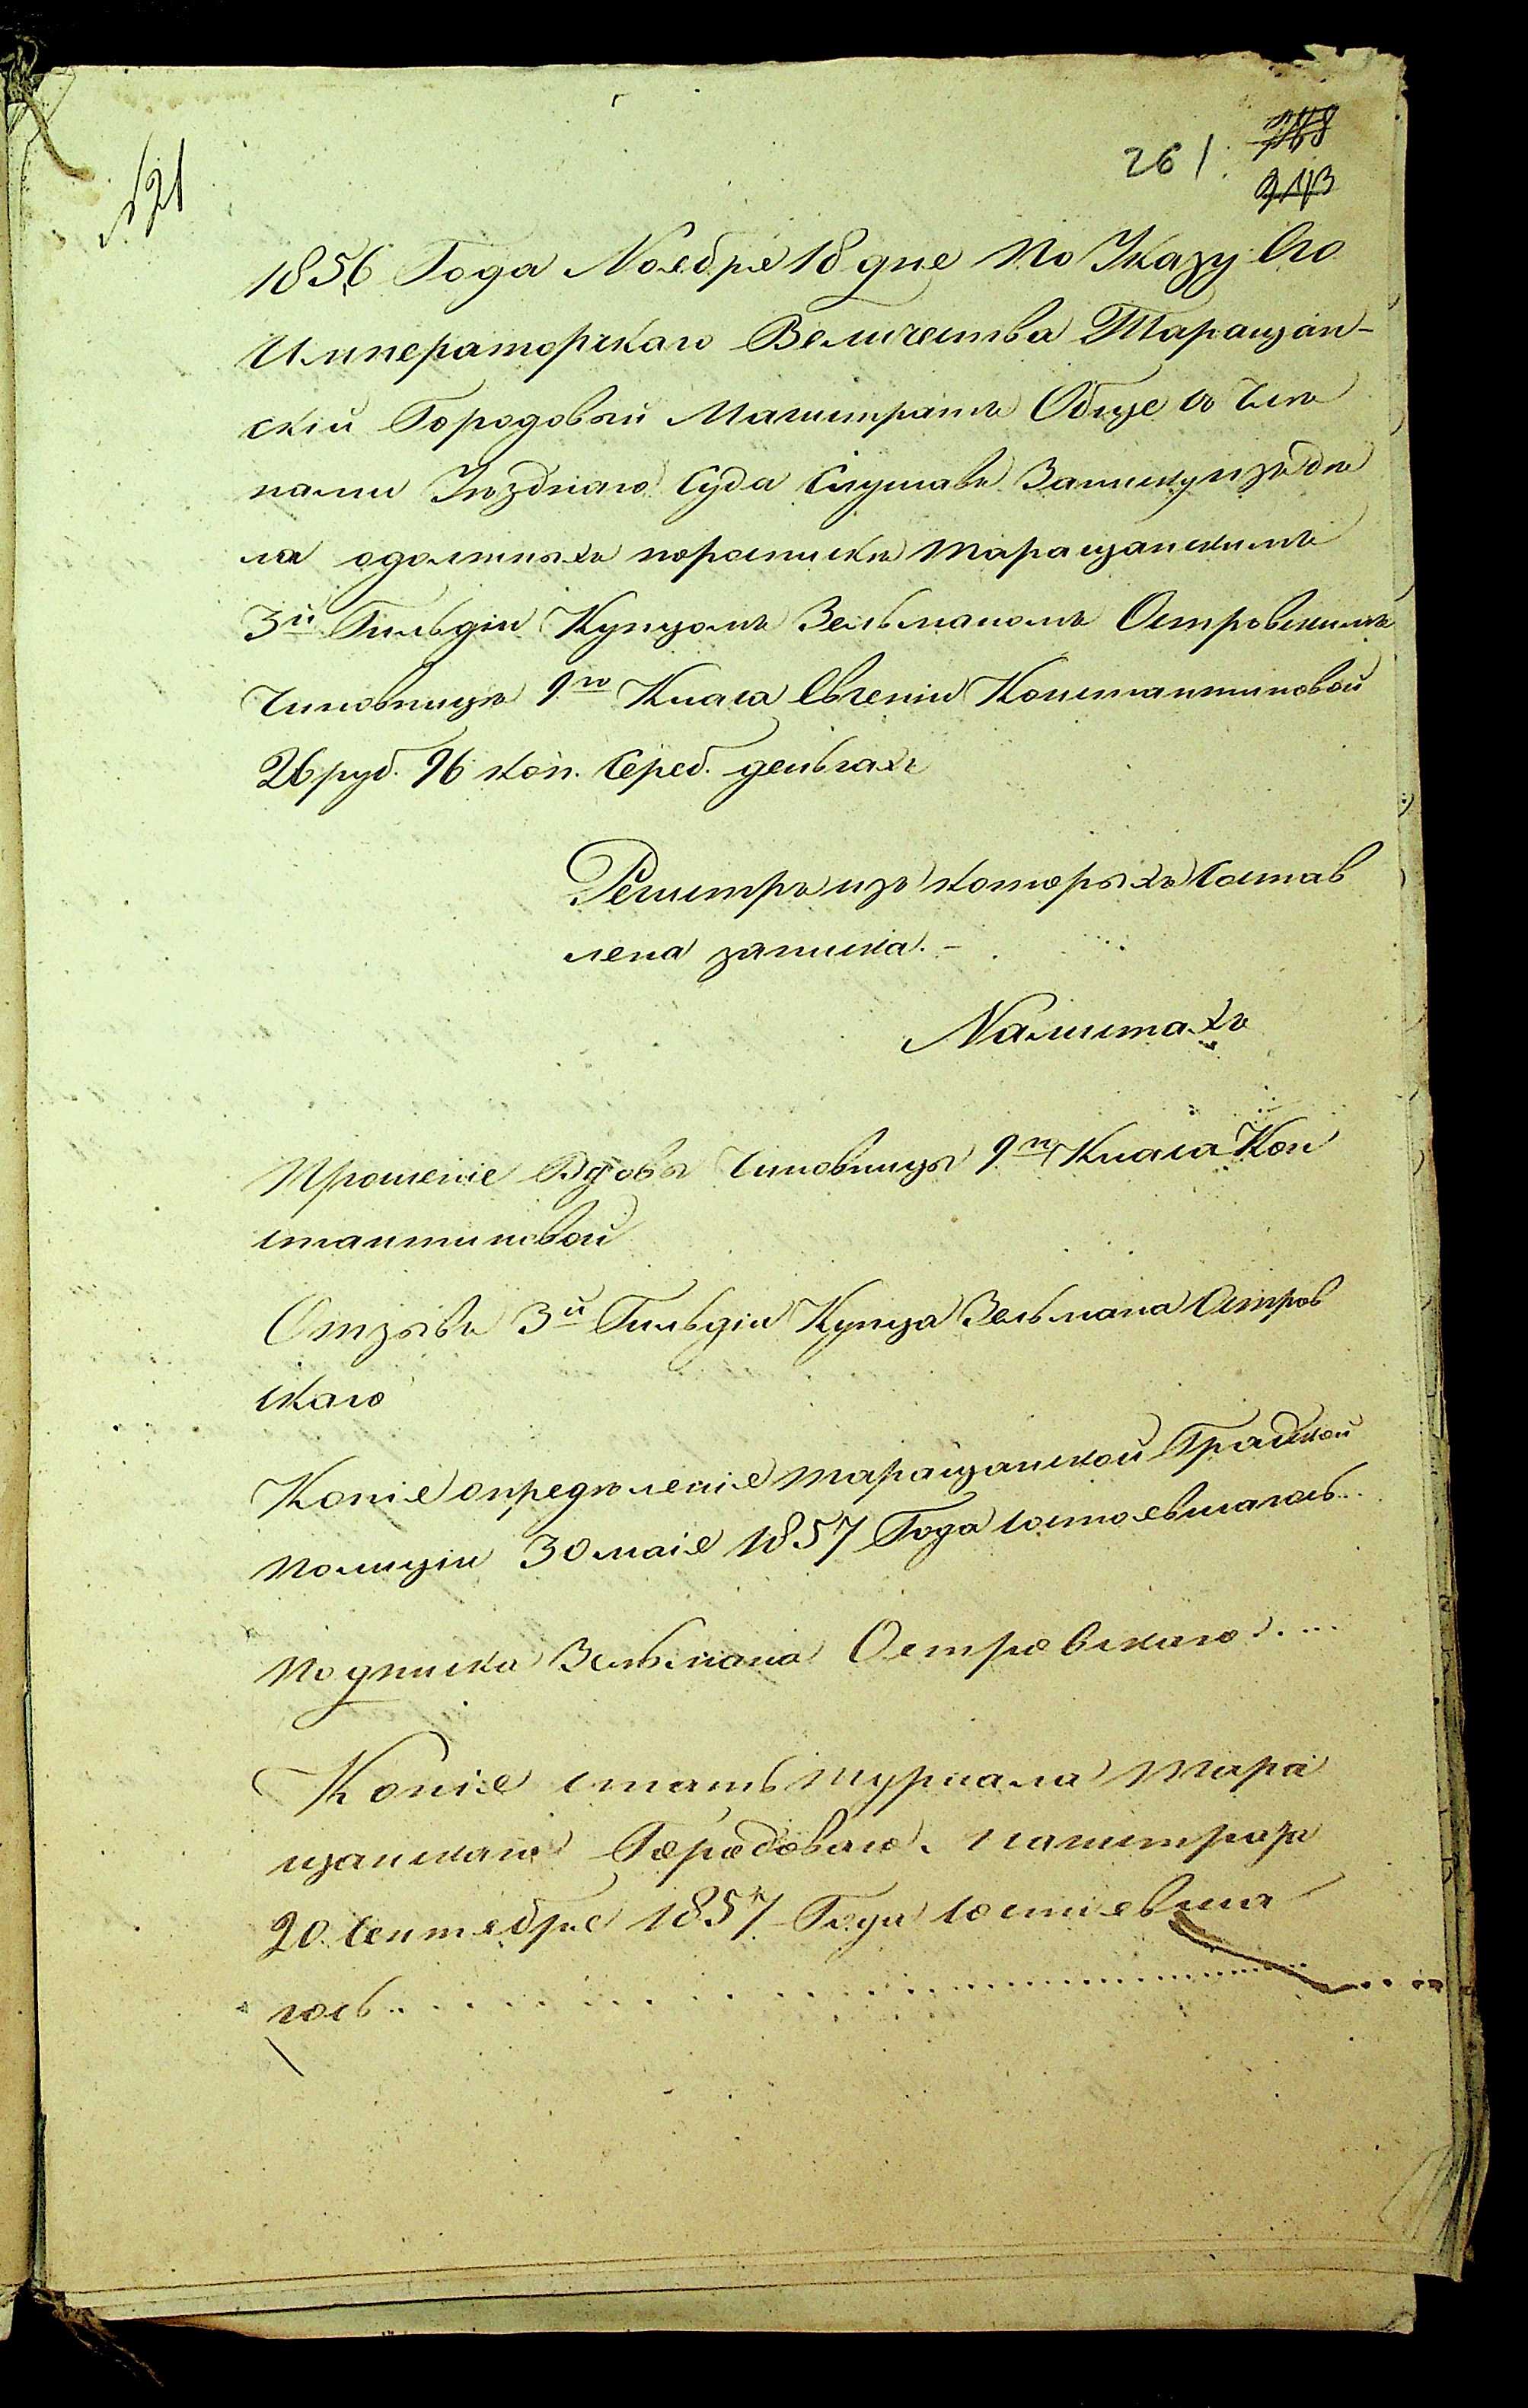 №21
261.
748
343
1856 Года Ноебря 18 дне По Указу Его
Императорскаго Величества Таращан-
скій Городовый Магистратъ Обще съ Чле
нами Уезднаго Суда Слушавъ Записку изъ де
ла одолжныхъ поросписке таращанскимъ
3й Гильдіи Купцомъ Зельманомъ Островскимъ
Чиновнице 9го Класа Евгеніи Константиновой
26 руб. 96 коп. Сереб. деньгахъ
Регистръ изъ которыхъ Состав
лена записка.-
Налистахъ
Прошеніе Вдовы Чиновницы 9го Класа Кон
стантиновой
Отзывъ 3й Гильдіи Купца Зельмана Остров
скаго
Копіе определеніе таращанской Градской
Полиціи 30 маіе 1857 Года состоевшагось...
Подписка Зельмана Островскаго....
Копіе стать журнала Тара
щанскаго Городоваго Магистрата
20 Сентебре 1857 Года состоевша
гось..............................